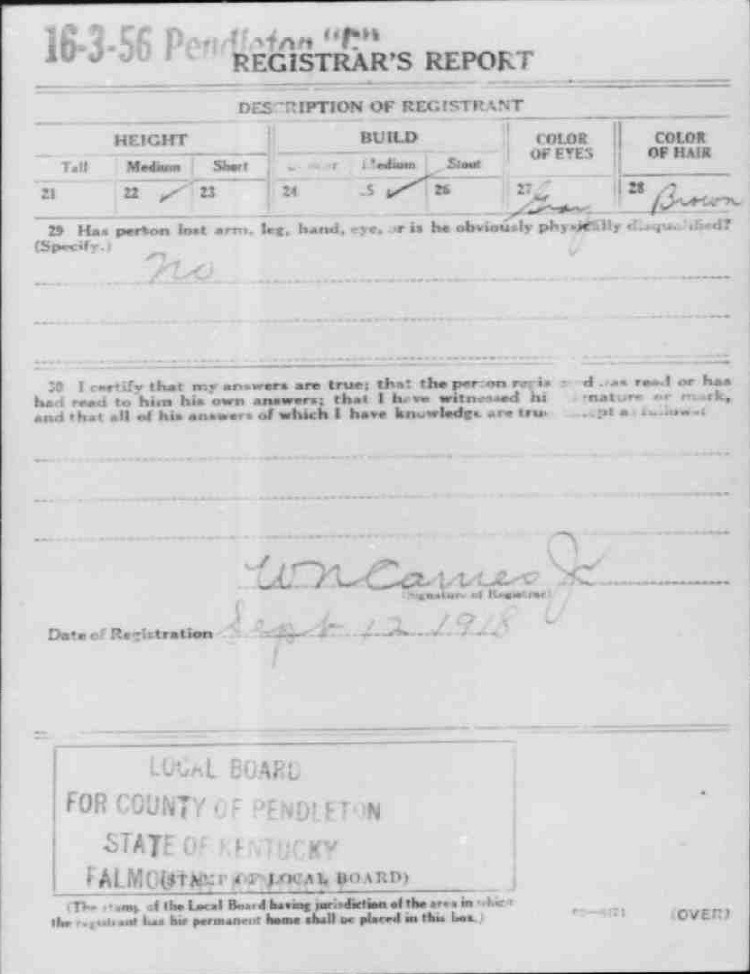 16-3-56 Pendleton "C"
REGISTRAR'S REPORT
DESCRIPTION OF REGISTRANT
HEIGHT BUILD COLOR OF EYES COLOR OF HAIR
Tall Medium Short Medium Stout
21 22 ✓ 23 24 25 ✓ 26 27 Gray 28 Brown
29 Has person lost arm, leg, hand, eye, or is he obviously physically disqualified?
(Specify.) no
30 I certify that my answers are true; that the person registered has read or has
had read to him his own answers; that I have witnessed his signature or mark,
and that all of his answers of which I have knowledge are true, except as follows:
W N Carnes Jr
(Signature of Registrar)
Date of Registration Sept 12 1918
LOCAL BOARD
FOR COUNTY OF PENDLETON
STATE OF KENTUCKY
FALMOUTH KENTUCKY
(STAMP OF LOCAL BOARD)
(The stamp of the Local Board having jurisdiction of the area in which
the registrant has his permanent home shall be placed in this box.)
(OVER)